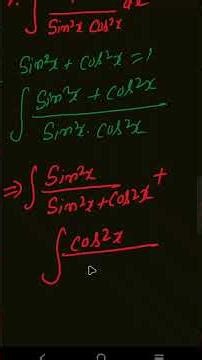 ∫ / Sin²x Cos²x dx
Sin²x + Cos²x = 1
∫ Sin²x + Cos²x / Sin²x · Cos²x
⇒ ∫ Sin²x / Sin²x + Cos²x +
∫ Cos²x /